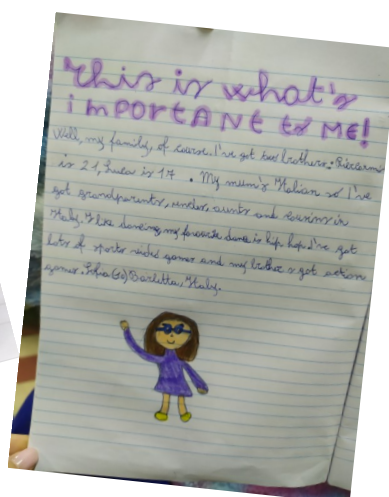 this is what's
iMPORtANt to ME!
Well, my family, of course. I've got two brothers: Riccardo
is 21, Luca is 17. My mum's Italian so I've
got grandparents, uncles, aunts and cousins in
Italy. I like dancing, my favorite dance is hip hop. I've got
lots of sports video games and my brother's got action
games. Sofia Barletta, Italy.